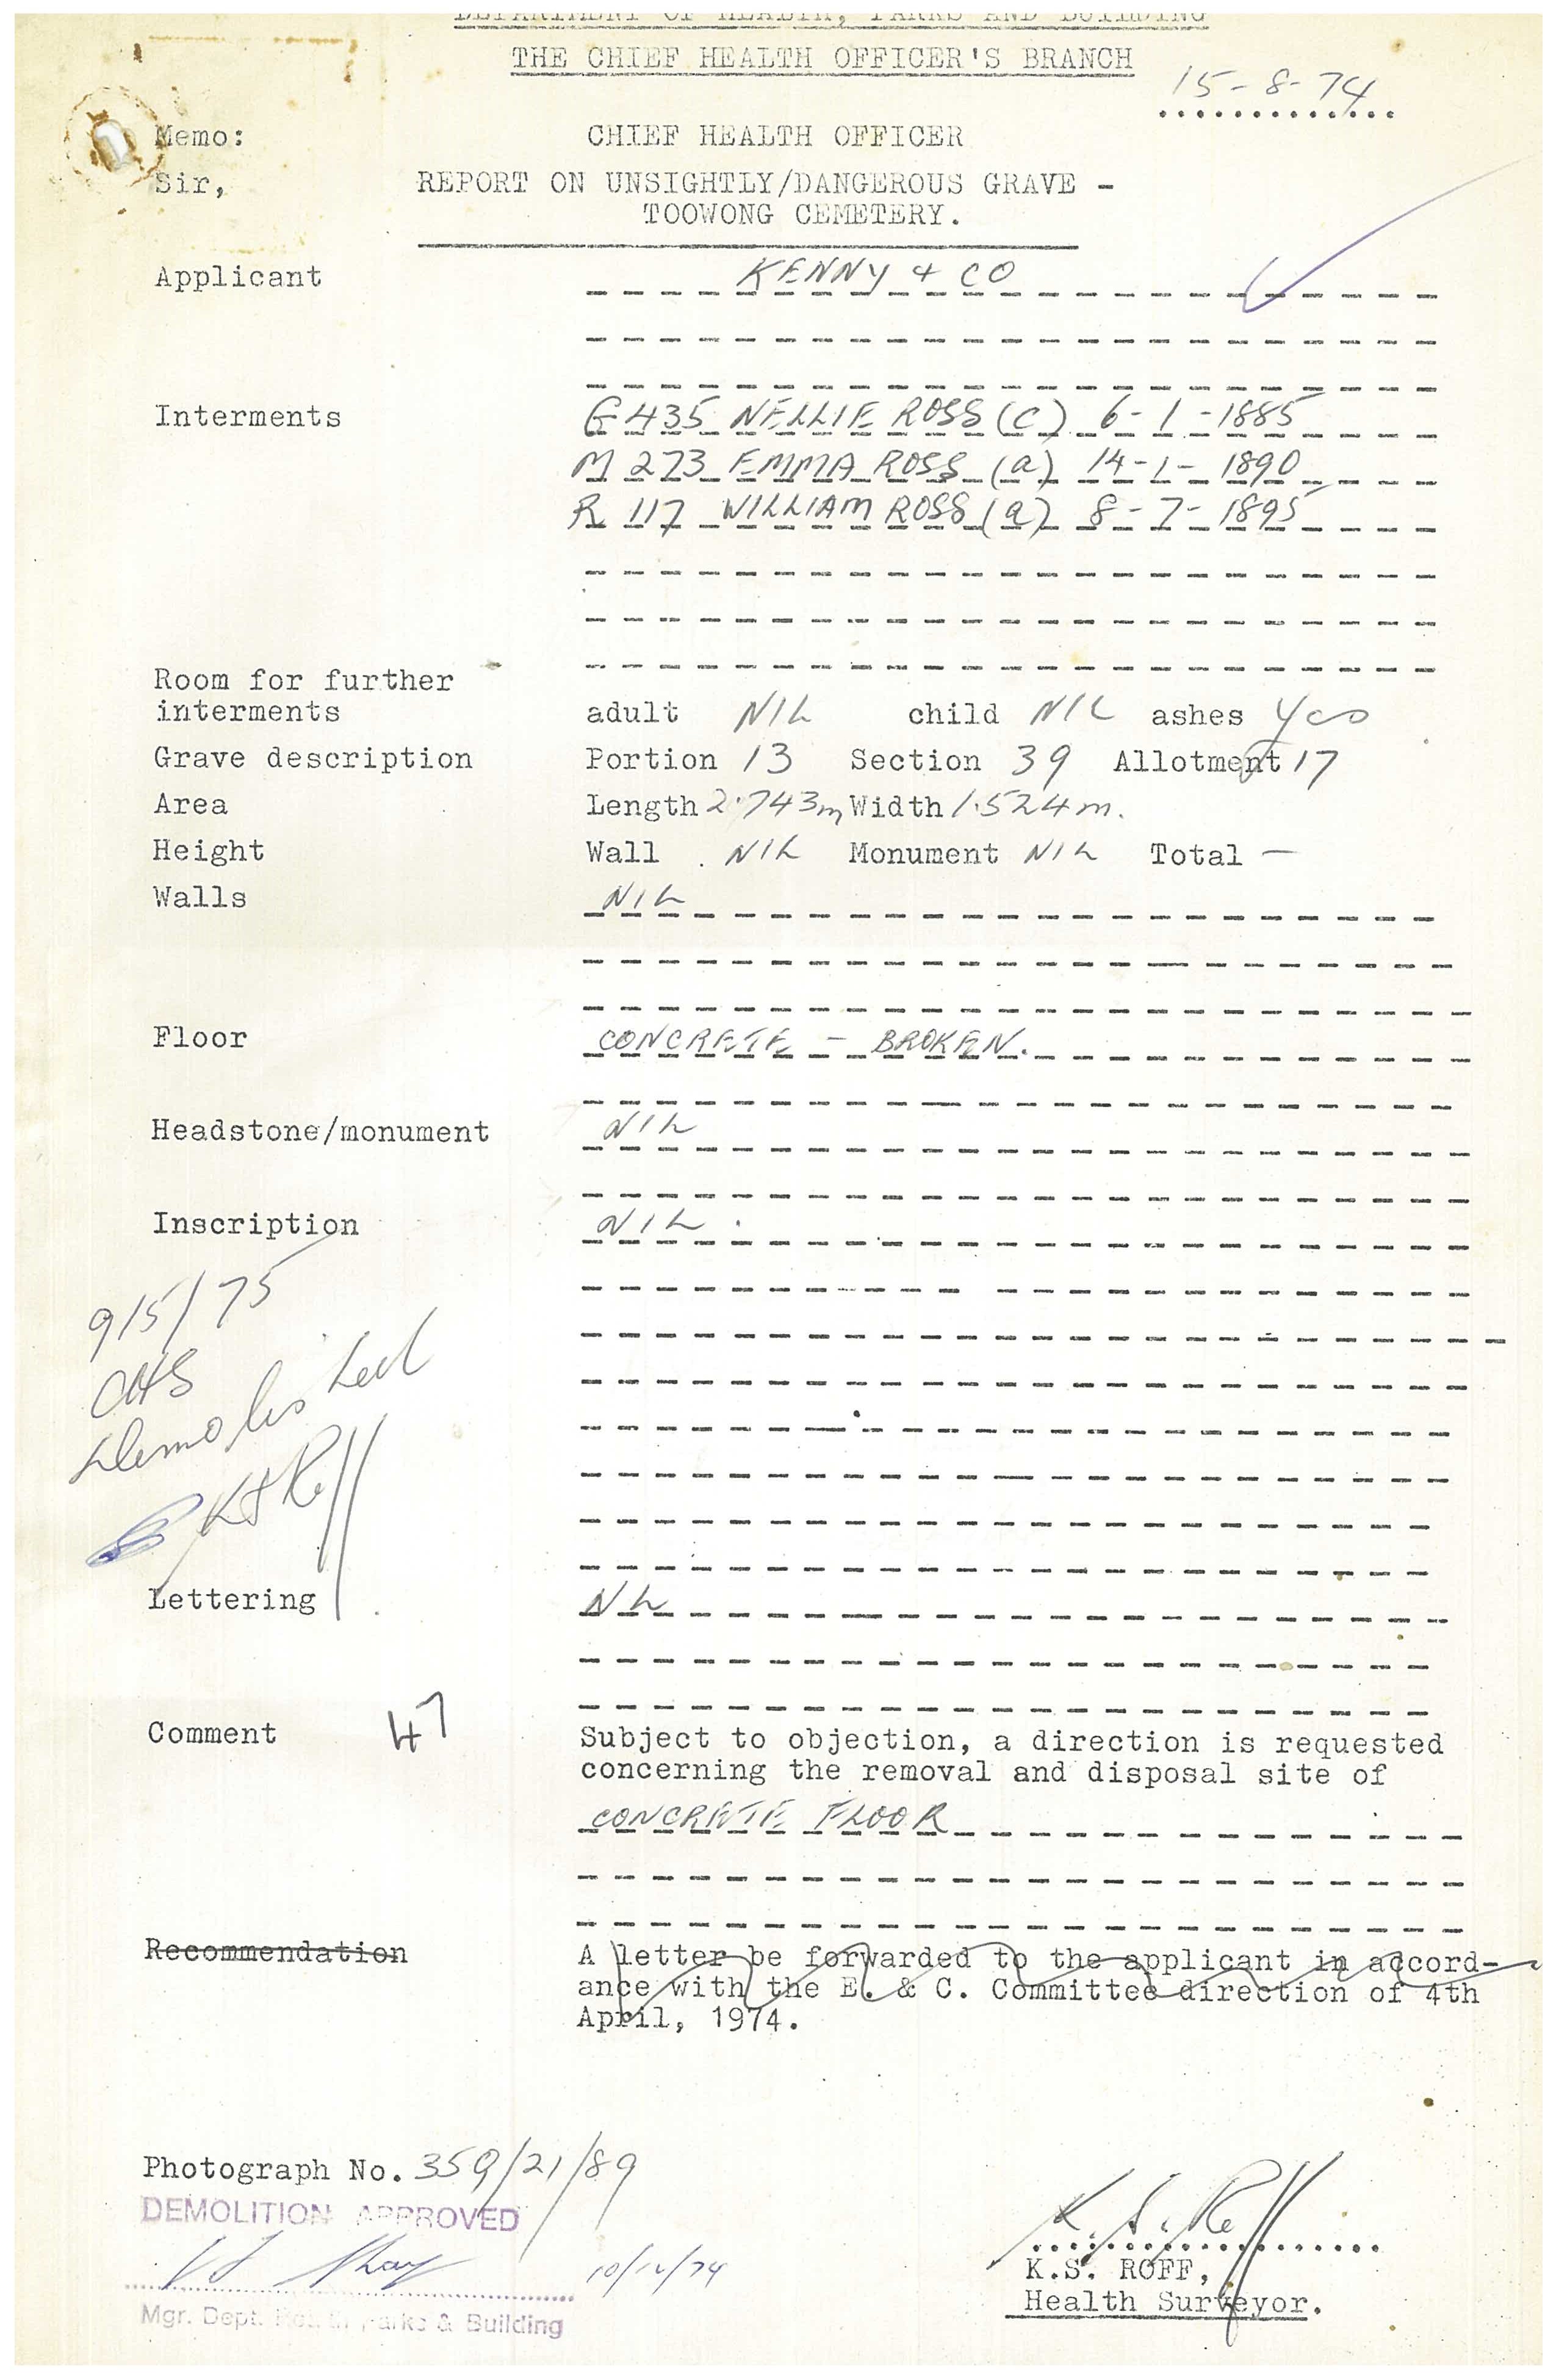 DEPARTMENT OF HEALTH, PARKS AND BUILDING
THE CHIEF HEALTH OFFICER'S BRANCH
15-8-74
Memo: CHIEF HEALTH OFFICER
Sir, REPORT ON UNSIGHTLY/DANGEROUS GRAVE -
TOOWONG CEMETERY.
Applicant KENNY & CO
Interments G 435 NELLIE ROSS (C) 6-1-1885
M 273 EMMA ROSS (a) 14-1-1890
R 117 WILLIAM ROSS (a) 8-7-1895
Room for further
interments adult NIL child NIL ashes Yes
Grave description Portion 13 Section 39 Allotment 17
Area Length 2.743m Width 1.524m.
Height Wall NIL Monument NIL Total —
Walls NIL
Floor CONCRETE - BROKEN.
Headstone/monument NIL
Inscription NIL.
9/5/75
CHS
Demolished
KS Roff
Lettering NIL
Comment 47 Subject to objection, a direction is requested
concerning the removal and disposal site of
CONCRETE FLOOR
Recommendation A letter be forwarded to the applicant in accord-
ance with the E. & C. Committee direction of 4th
April, 1974.
Photograph No. 359/21/89
DEMOLITION APPROVED
10/12/74
K.S. Roff
K.S. ROFF,
Mgr. Dept. Health Parks & Building
Health Surveyor.